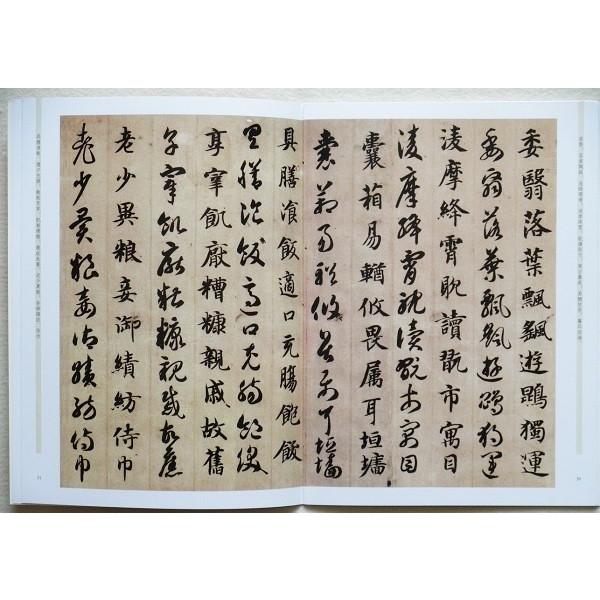 委翳落葉飄飖遊鵾獨運
委翳落葉飄飖遊鵾獨運
淩摩絳霄耽讀翫市寓目
淩摩絳霄耽讀翫市寓目
囊箱易輶攸畏屬耳垣墻
囊箱易輶攸畏屬耳垣墻
具膳湌飯適口充腸飽飫
具膳湌飯適口充腸飽飫
享宰飢厭糟糠親戚故舊
享宰飢厭糟糠親戚故舊
老少異粮妾御績紡侍巾
老少異粮妾御績紡侍巾